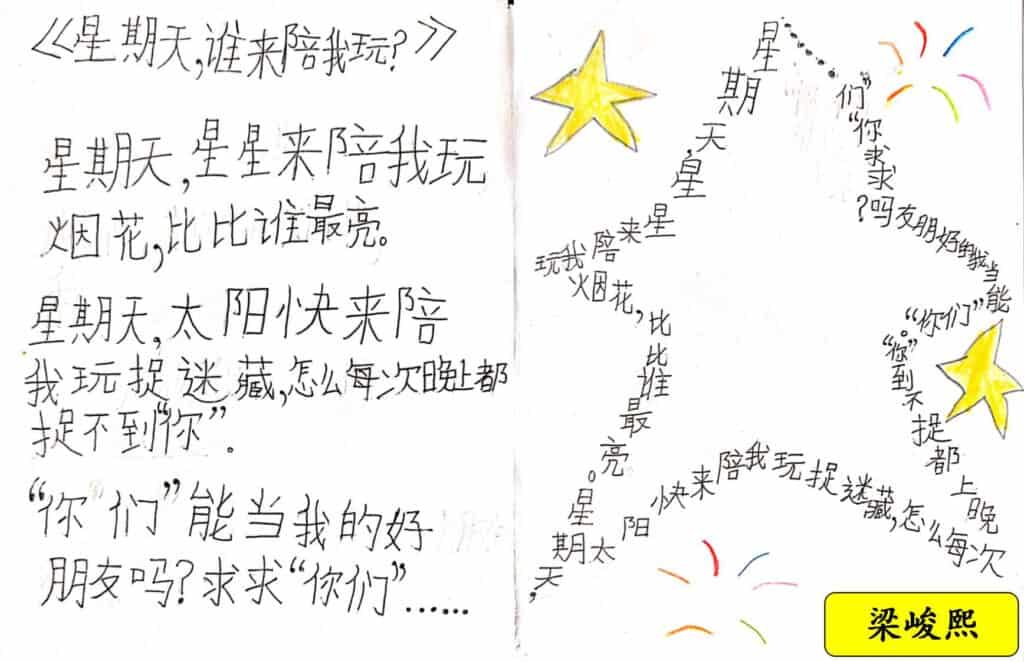 《星期天,谁来陪我玩?》
星期天,星星来陪我玩
烟花,比比谁最亮。
星期天,太阳快来陪
我玩捉迷藏,怎么每次晚上都
捉不到“你”.
“你“们”能当我的好
朋友吗?求求“你们”......
星期天,星星来陪我玩
烟花,比比谁最亮。星期天,
太阳快来陪我玩捉迷藏,怎么每次
晚上都捉不到“你”。
“你们”能当我的好朋友吗?
求求“你们”......
梁峻熙